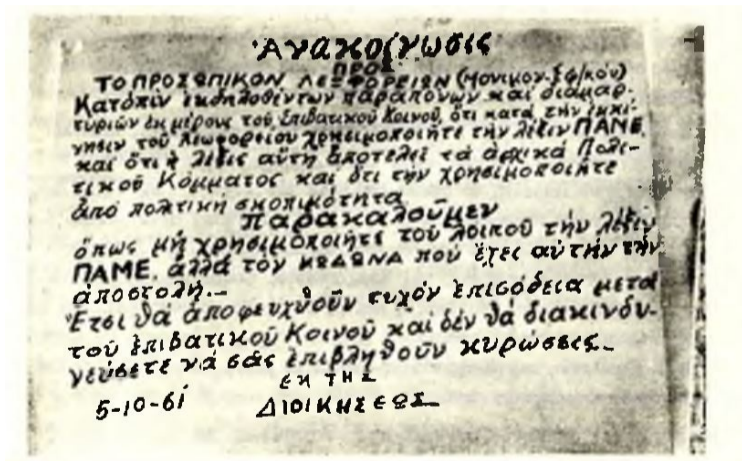 Ἀνακοίνωσις
ΠΡΟΣ
ΤΟ ΠΡΟΣΩΠΙΚΟΝ ΛΕΩΦΟΡΕΙΩΝ (Μονιμον-Εφ/κόν)
Κατόπιν ἐκδηλοθέντων παραπόνων καὶ διαμαρ-
τυριῶν ἐκ μέρους τοῦ Ἐπιβατικοῦ Κοινοῦ, ὅτι κατά τὴν ἐκκί-
νησιν τοῦ Λεωφορείου χρησιμοποιῆτε τὴν λέξιν ΠΑΜΕ
καὶ ὅτι ἡ λέξις αὕτη ἀποτελεῖ τά ἀρχικά Πολι-
τικοῦ Κόμματος καὶ ὅτι τὴν χρησιμοποιῆτε
ἀπό πολτική σκοπικότητα
παρακαλοῦμεν
ὅπως μή χρησιμοποιῆτε τοῦ λοιποῦ τὴν λέξιν
ΠΑΜΕ, ἀλλά τόν ΚΩΔΩΝΑ πού ἔχει αὐτήν τήν
ἀποστολή.-
Ἔτσι θά ἀποφευχθοῦν τυχόν ἐπισόδεια μετά
τοῦ ἐπιβατικοῦ Κοινοῦ καὶ δέν θά διακινδυ-
νεύσετε νά σᾶς ἐπιβληθοῦν κυρώσεις-
ΕΚ ΤΗΣ
5-10-61 ΔΙΟΙΚΗΣΕΩΣ